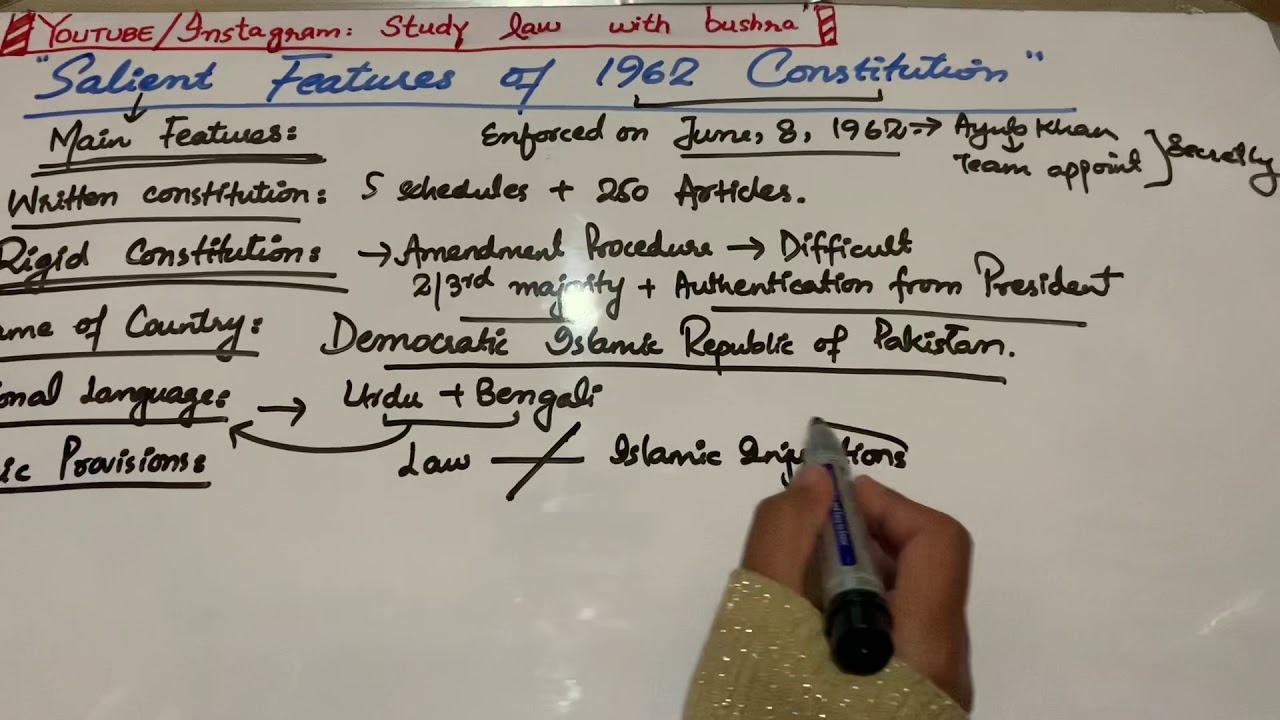 YOUTUBE/Instagram: Study law with bushra"
"Salient Features of 1962 Constitution"
Main Features: Enforced on June, 8, 1962 → Ayub Khan
Team appoint Secretly
Written constitution: 5 schedules + 250 Articles.
Rigid Constitution: → Amendment Procedure → Difficult
2/3rd majority + Authentication from President
ame of Country: Democratic Islamic Republic of Pakistan.
onal Language: → Urdu + Bengali
ic Provisions: Law Islamic